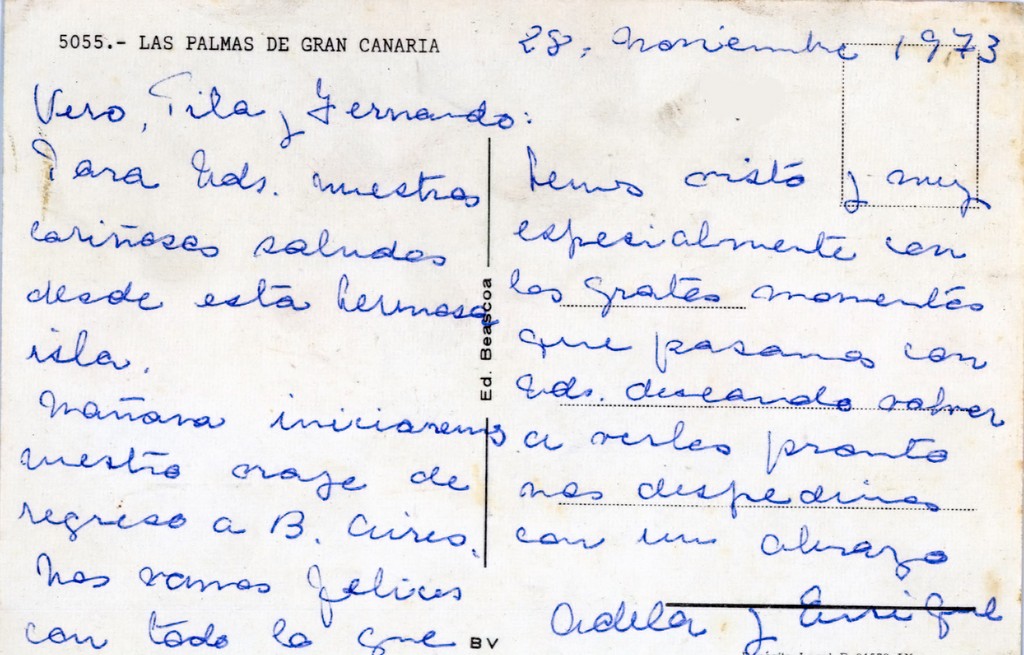 5055.- LAS PALMAS DE GRAN CANARIA
28, noviembre 1973
Vero, Tila y Fernando:
Para Uds. nuestros
cariñosos saludos
desde esta hermosa
isla.
Mañana iniciaremos
nuestro viaje de
regreso a B. Aires.
Nos vamos felices
con todo lo que
hemos visto y muy
espesialmente con
los gratos momentos
que pasamos con
Uds. deseando volver
a verles pronto
nos despedimos
con un abrazo
Adela y Enrique
Ed. Beascoa
BV